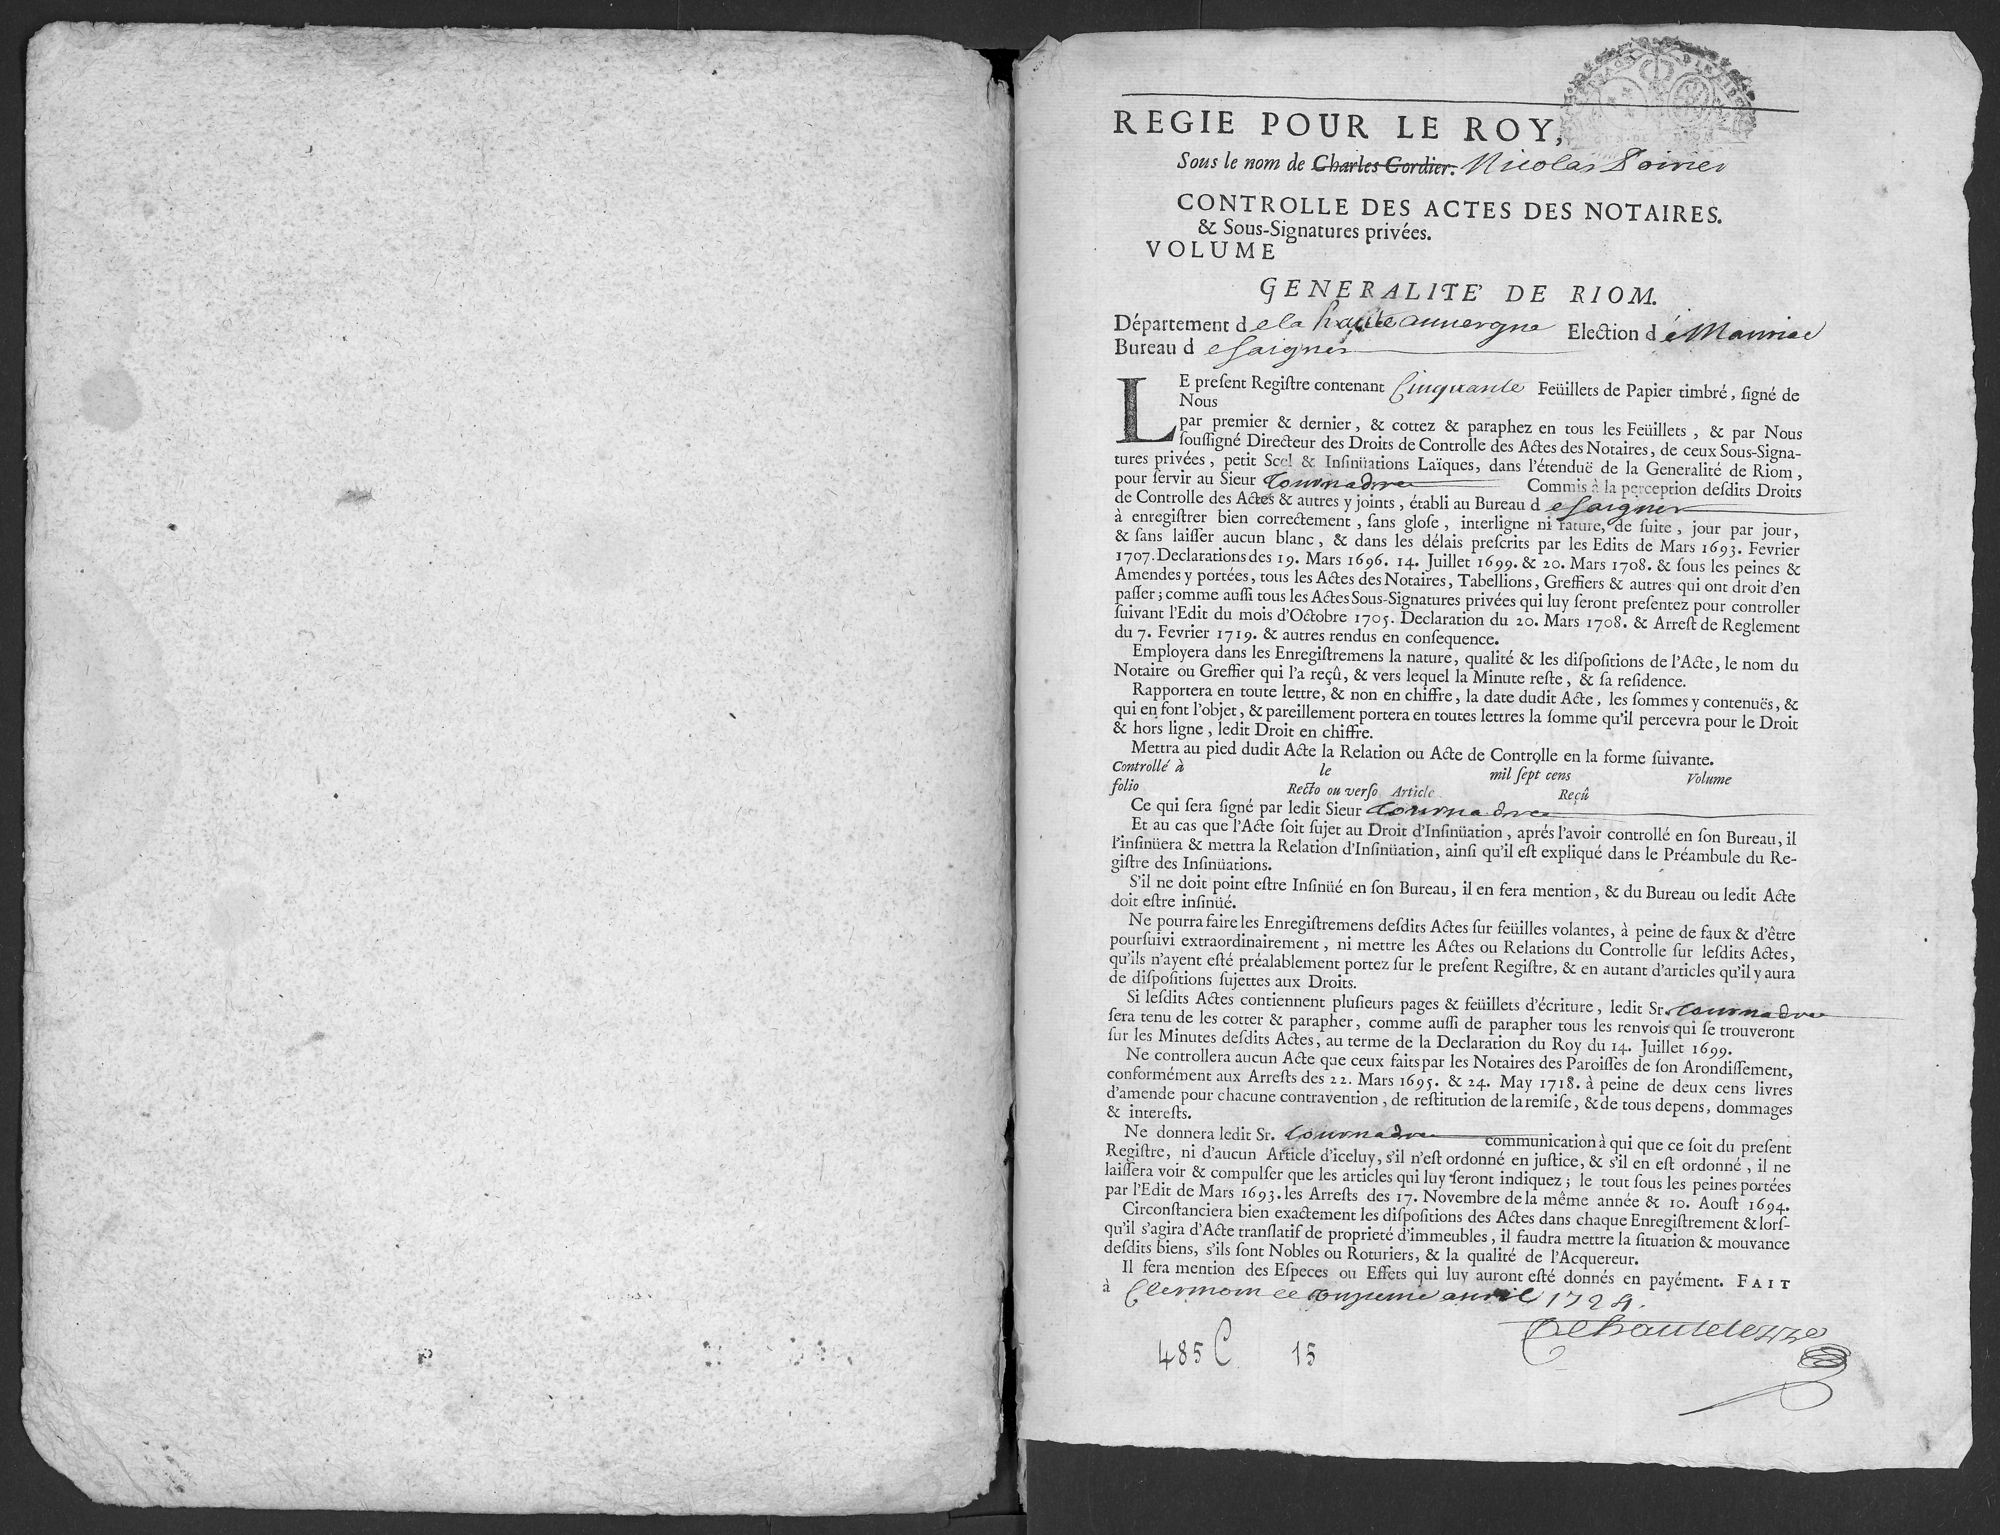 REGIE POUR LE ROY,
Sous le nom de Charles Cordier. Nicolas
CONTROLLE DES ACTES DES NOTAIRES.
& Sous-Signatures privées.
VOLUME
GENERALITE' DE RIOM.
Département d e la haute auvergne Election d e Mauriac
Bureau d e Saignes
LE preſent Regiſtre contenant Cinquante Feüillets de Papier timbré, ſigné de
Nous
par premier & dernier, & cottez & paraphez en tous les Feüillets, & par Nous
ſouſſigné Directeur des Droits de Controlle des Actes des Notaires, de ceux Sous-Signa-
tures privées, petit Scel & Inſinüations Laïques, dans l'étenduë de la Generalité de Riom,
pour ſervir au Sieur Tournadre Commis à la perception deſdits Droits
de Controlle des Actes & autres y joints, établi au Bureau d e Saignes
à enregiſtrer bien correctement, ſans gloſe, interligne ni rature, de ſuite, jour par jour,
& ſans laiſſer aucun blanc, & dans les délais preſcrits par les Edits de Mars 1693. Fevrier
1707. Declarations des 19. Mars 1696. 14. Juillet 1699. & 20. Mars 1708. & ſous les peines &
Amendes y portées, tous les Actes des Notaires, Tabellions, Greffiers & autres qui ont droit d'en
paſſer; comme auſſi tous les Actes Sous-Signatures privées qui luy ſeront preſentez pour controller
ſuivant l'Edit du mois d'Octobre 1705. Declaration du 20. Mars 1708. & Arreſt de Reglement
du 7. Fevrier 1719. & autres rendus en conſequence.
Employera dans les Enregiſtremens la nature, qualité & les diſpoſitions de l'Acte, le nom du
Notaire ou Greffier qui l'a reçû, & vers lequel la Minute reſte, & ſa reſidence.
Rapportera en toute lettre, & non en chiffre, la date dudit Acte, les ſommes y contenuës, &
qui en font l'objet, & pareillement portera en toutes lettres la ſomme qu'il percevra pour le Droit
& hors ligne, ledit Droit en chiffre.
Mettra au pied dudit Acte la Relation ou Acte de Controlle en la forme ſuivante.
Controllé à le mil ſept cens Volume
folio Recto ou verſo Article Reçû
Ce qui ſera ſigné par ledit Sieur Tournadre
Et au cas que l'Acte ſoit ſujet au Droit d'Inſinüation, aprés l'avoir controllé en ſon Bureau, il
l'inſinüera & mettra la Relation d'Inſinüation, ainſi qu'il eſt expliqué dans le Préambule du Re-
giſtre des Inſinüations.
S'il ne doit point eſtre Inſinüé en ſon Bureau, il en fera mention, & du Bureau ou ledit Acte
doit eſtre inſinüé.
Ne pourra faire les Enregiſtremens deſdits Actes ſur feüilles volantes, à peine de faux & d'être
pourſuivi extraordinairement, ni mettre les Actes ou Relations du Controlle ſur leſdits Actes,
qu'ils n'ayent eſté préalablement portez ſur le preſent Regiſtre, & en autant d'articles qu'il y aura
de diſpoſitions ſujettes aux Droits.
Si leſdits Actes contiennent pluſieurs pages & feüillets d'écriture, ledit Sr. Tournadre
ſera tenu de les cotter & parapher, comme auſſi de parapher tous les renvois qui ſe trouveront
ſur les Minutes deſdits Actes, au terme de la Declaration du Roy du 14. Juillet 1699.
Ne controllera aucun Acte que ceux faits par les Notaires des Paroiſſes de ſon Arondiſſement,
conformément aux Arreſts des 22. Mars 1695. & 24. May 1718. à peine de deux cens livres
d'amende pour chacune contravention, de reſtitution de la remiſe, & de tous depens, dommages
& intereſts.
Ne donnera ledit Sr. Tournadre communication à qui que ce ſoit du preſent
Regiſtre, ni d'aucun Article d'iceluy, s'il n'eſt ordonné en juſtice, & s'il en eſt ordonné, il ne
laiſſera voir & compulſer que les articles qui luy ſeront indiquez; le tout ſous les peines portées
par l'Edit de Mars 1693. les Arreſts des 17. Novembre de la même année & 10. Aouſt 1694.
Circonſtanciera bien exactement les diſpoſitions des Actes dans chaque Enregiſtrement & lorſ-
qu'il s'agira d'Acte tranſlatif de proprieté d'immeubles, il faudra mettre la ſituation & mouvance
deſdits biens, s'ils ſont Nobles ou Roturiers, & la qualité de l'Acquereur.
Il ſera mention des Eſpeces ou Effets qui luy auront eſté donnés en payément. FAIT
à Clermont ce avril 1724.
485 C 15